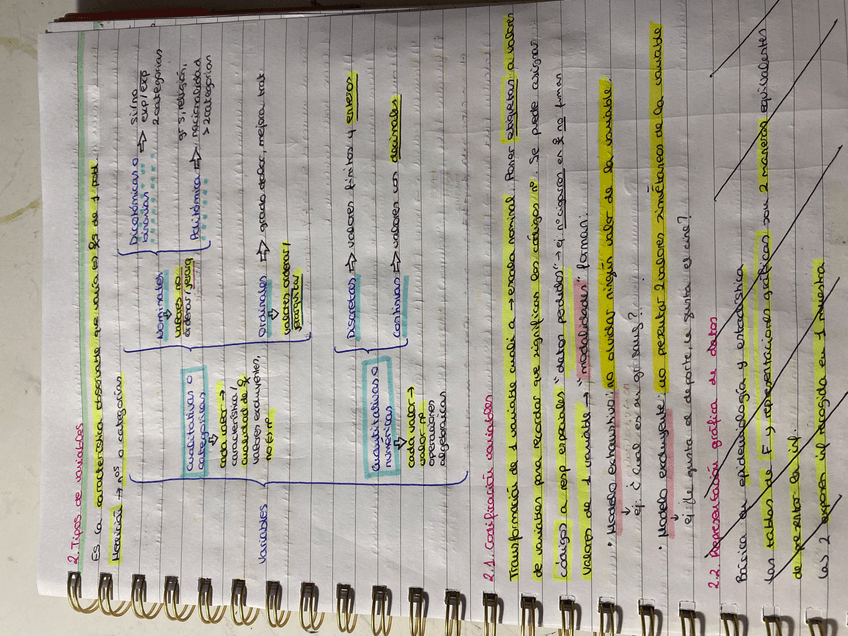 2. Tipos de variables
Es la característica observable que varía es de 1 pobl.
Medición → nos o categorías
Variables
Cualitativas o
categóricas
cada valor →
característica/
cualidad de
valores excluyentes,
no son nº
Nominales
valores no
ordenar/jerarq
Dicotómicas o
binarias
Si/no
exp/exp
2 categorías
Politómica
gr s, religión,
nacionalidad
> 2 categorías
Ordinales
valores ordenar/
jerarquizar
grado dolor, mejora trat
Cuantitativas o
numéricas
cada valor →
valor nº
operaciones
algebraicas
Discretas
valores finitos y enteros
Continuas
valores con decimales
2.1. Codificación variables
Transformación de 1 variable cuali a → escala nominal. Poner etiquetas a valores
de variables para recordar que significan los códigos nº. Se puede asignar
códigos a resp especiales "datos perdidos" → ej nº cigarros en no fuman
Valores de 1 variable → "modalidades" forman:
• Modelo exhaustivo: no olvidar ningún valor de la variable
ej. ¿Cual es su gr sang?
• Modelo excluyente: no presentar 2 valores simultáneos de la variable
ej ¿le gusta el deporte, le gusta el cine?
2.2 Representación gráfica de datos
Básica en epidemiología y estadística
Las tablas de F y representaciones gráficas son 2 maneras equivalentes
de presentar la inf.
Las 2 exponen inf recogida en 1 muestra